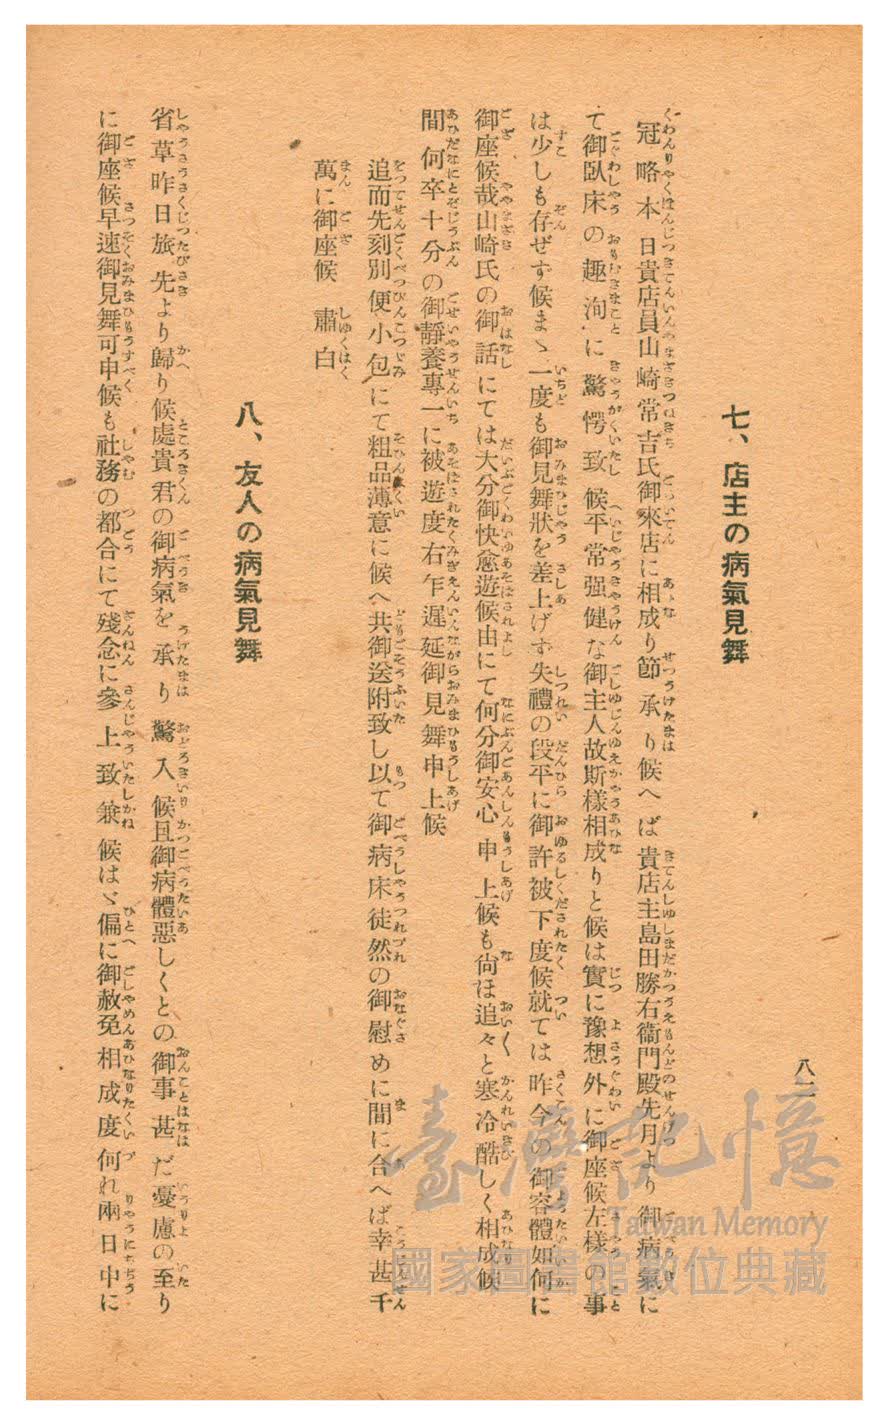 八二
七、店主の病氣見舞
冠略本日貴店員山崎常吉氏御來店に相成り節承り候へば貴店主島田勝右衞門殿先月より御病氣に
て御臥床の趣洵に驚愕致候平常强健な御主人故斯樣相成りと候は實に豫想外に御座候左樣の事
は少しも存ぜず候まゝ一度も御見舞狀を差上げず失禮の段平に御許被下度候就ては昨今の御容體如何に
御座候哉山崎氏の御話にては大分御快愈遊候由にて何分御安心申上候も尙ほ追々と寒冷酷しく相成候
間何卒十分の御靜養專一に被遊度右乍遲延御見舞申上候
追而先刻別便小包にて粗品薄意に候へ共御送附致し以て御病床徒然の御慰めに間に合へば幸甚千
萬に御座候　肅白
八、友人の病氣見舞
省草昨日旅先より歸り候處貴君の御病氣を承り驚入候且御病體惡しくとの御事甚だ憂慮の至り
に御座候早速御見舞可申候も社務の都合にて殘念に參上致兼候はゞ偏に御赦免相成度何れ兩日中に
臺灣記憶
Taiwan Memory
國家圖書館數位典藏